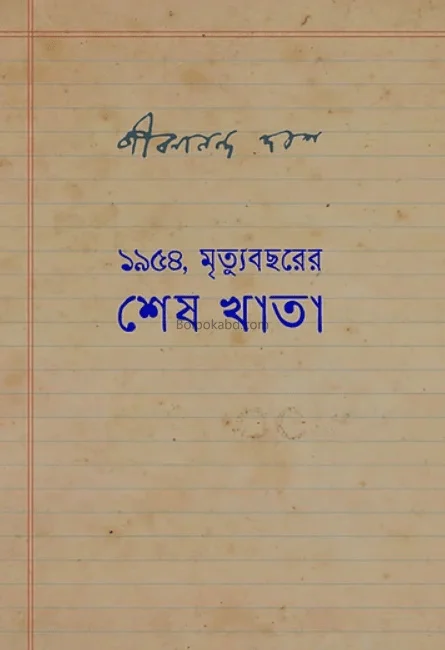 জীবনানন্দ দাশ
১৯৫৪, মৃত্যুবছরের
শেষ খাতা
Boibookabd.com